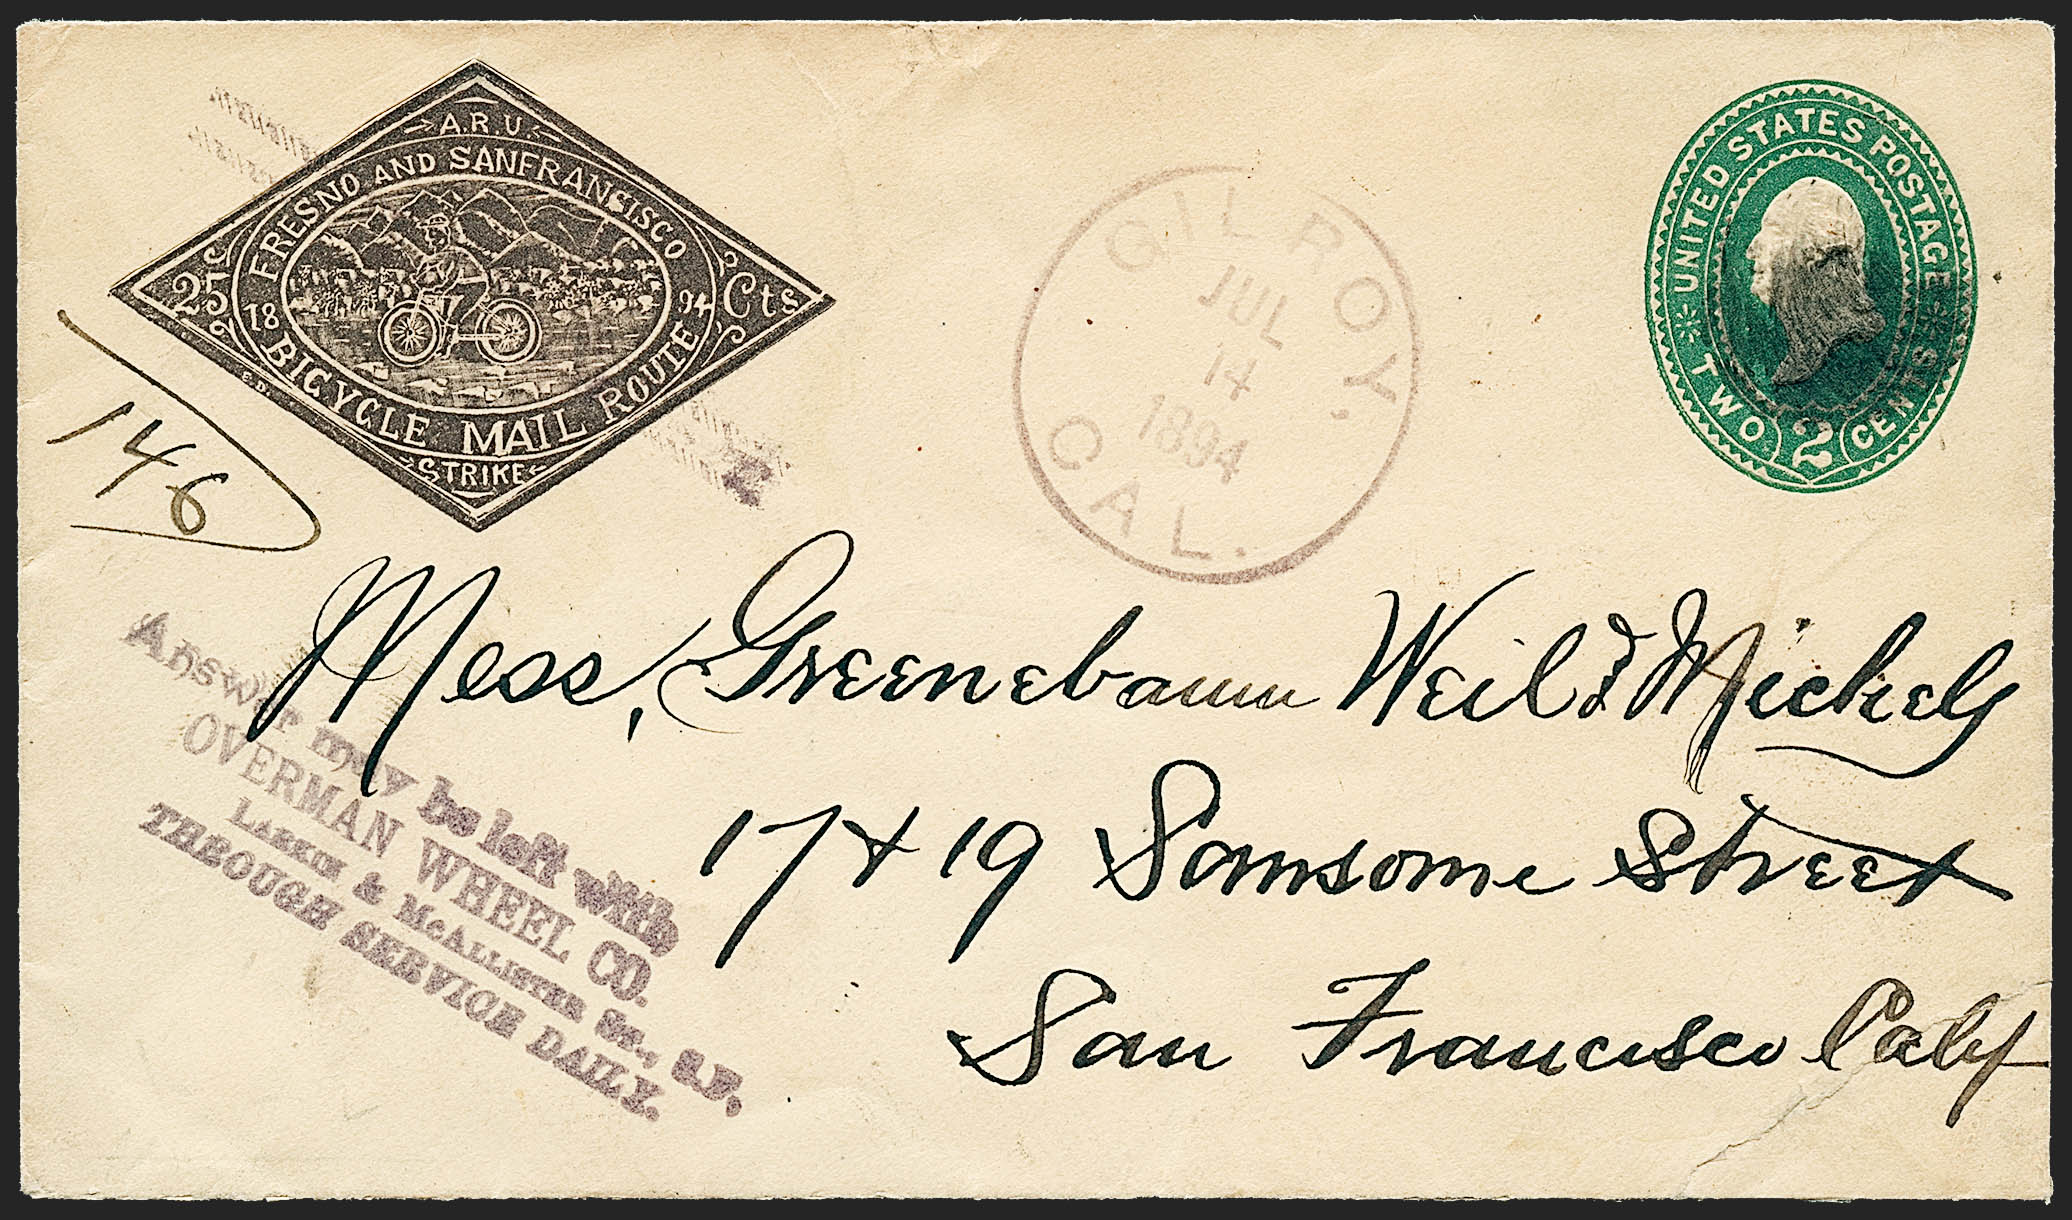 A.R.U.
FRESNO AND SANFRANSISCO
25 Cts
18 94
BICYCLE MAIL ROUTE
E.D.
STRIKE
146
GILROY,
JUL
14
1894
CAL.
UNITED STATES POSTAGE
TWO 2 CENTS
Mess, Greenebaum Weil & Michels
17 & 19 Sansome Street
San Francisco Caly
Answer may be left with
OVERMAN WHEEL CO.
LARKIN & McALLISTER STS., S.F.
THROUGH SERVICE DAILY.